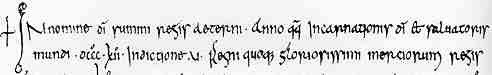 In nomine dī summi regis aeterni · Anno quoq incarnationis dī et salvatoris
mundi · dccc · xii · indictione · v · Regni quoque gloriosissimi merciorum regis